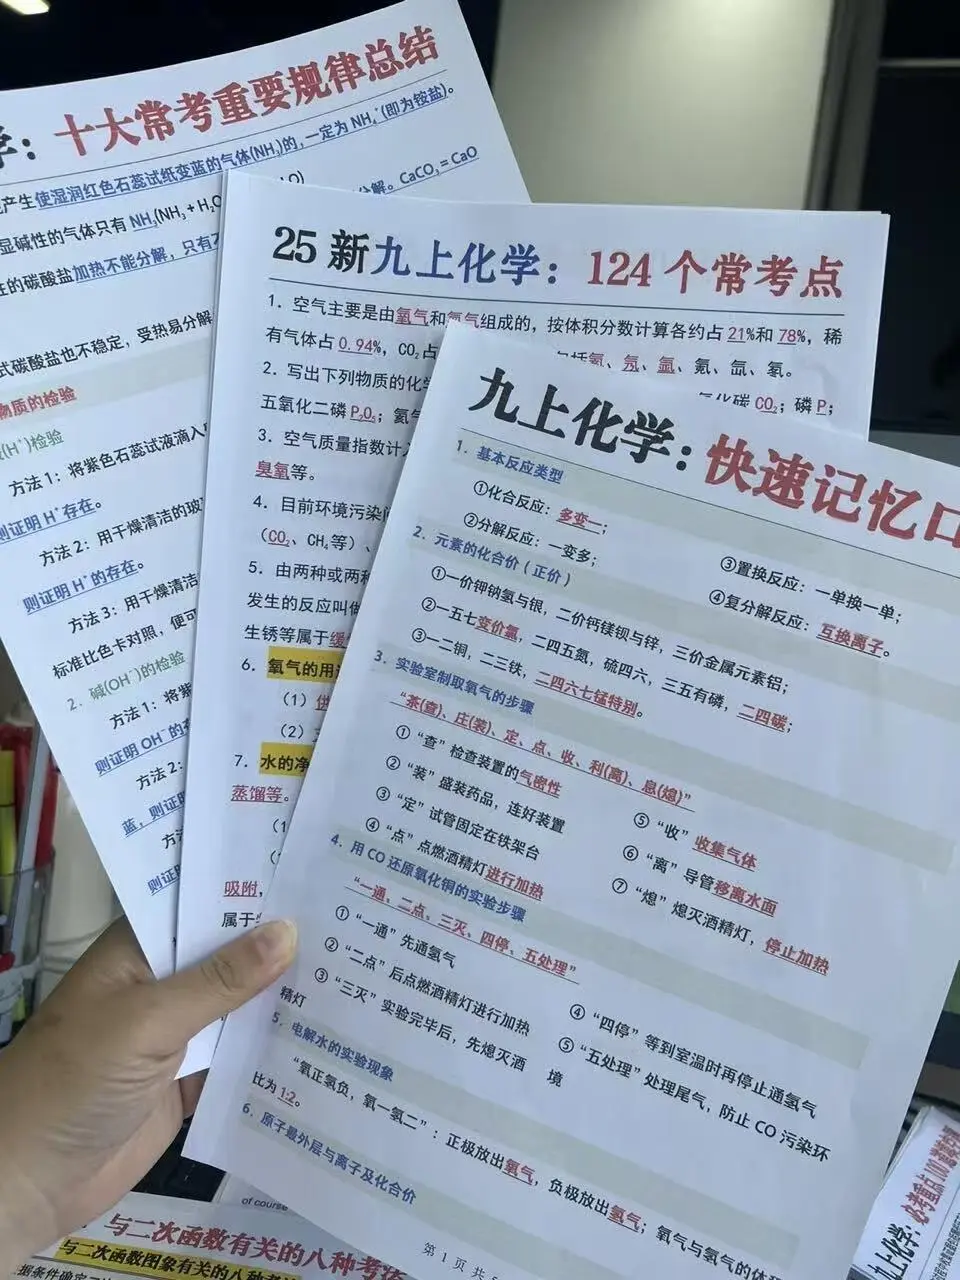 学：十大常考重要规律总结
产生使湿润红色石蕊试纸变蓝的气体(NH₃)的，一定为 NH₄⁺(即为铵盐)。
显碱性的气体只有 NH₃(NH₃ + H₂O
性的碳酸盐加热不能分解，只有
分解。CaCO₃ = CaO
式碳酸盐也不稳定，受热易分解
物质的检验
(H⁺)检验
方法1：将紫色石蕊试液滴入
则证明 H⁺存在。
方法2：用干燥清洁的玻
则证明 H⁺的存在。
方法3：用干燥清洁
标准比色卡对照，便可
2. 碱(OH⁻)的检验
方法1：将紫
则证明 OH⁻的存
方法2：
蓝，则证明
方法
则证明
25 新九上化学：124 个常考点
1. 空气主要是由氧气和氮气组成的，按体积分数计算各约占 21%和 78%，稀
有气体占 0.94%，CO₂占
包括氦、氖、氩、氪、氙、氡。
2. 写出下列物质的化学
氧化碳 CO₂；磷 P；
五氧化二磷 P₂O₅；氦气
3. 空气质量指数计入
臭氧等。
4. 目前环境污染问
（CO₂、CH₄等）、
5. 由两种或两种
发生的反应叫做
生锈等属于缓
6. 氧气的用途
（1）供
（2）
7. 水的净
蒸馏等。
（1
吸附，
属于
九上化学：快速记忆口
1. 基本反应类型
①化合反应：多变一；
②分解反应：一变多；
③置换反应：一单换一单；
④复分解反应：互换离子。
2. 元素的化合价（正价）
①一价钾钠氢与银，二价钙镁钡与锌，三价金属元素铝；
②一五七变价氯，二四五氮，硫四六，三五有磷，二四碳；
③一二铜，二三铁，二四六七锰特别。
3. 实验室制取氧气的步骤
“茶(查)、庄(装)、定、点、收、利(离)、息(熄)”
①“查”检查装置的气密性
②“装”盛装药品，连好装置
③“定”试管固定在铁架台
④“点”点燃酒精灯进行加热
⑤“收”收集气体
⑥“离”导管移离水面
⑦“熄”熄灭酒精灯，停止加热
4. 用 CO 还原氧化铜的实验步骤
“一通、二点、三灭、四停、五处理”
①“一通”先通氢气
②“二点”后点燃酒精灯进行加热
③“三灭”实验完毕后，先熄灭酒
精灯
④“四停”等到室温时再停止通氢气
⑤“五处理”处理尾气，防止 CO 污染环
境
5. 电解水的实验现象
“氧正氢负，氧一氢二”：正极放出氧气，负极放出氢气；氧气与氢气的体
比为 1:2。
6. 原子最外层与离子及化合价
第 1 页 共
of course
与二次函数有关的八种考
与二次函数图象有关的八种
据条件确定
九上化学：必考重点100